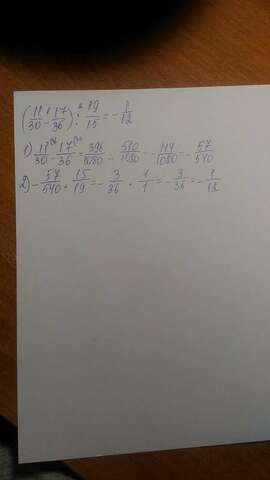 (11/30 - 17/36) : 19/15 = - 1/12
1) 11/30 - 17/36 = 396/1080 - 510/1080 = - 114/1080 = - 57/540
2) - 57/540 · 15/19 = - 3/36 · 1/1 = - 3/36 = - 1/12